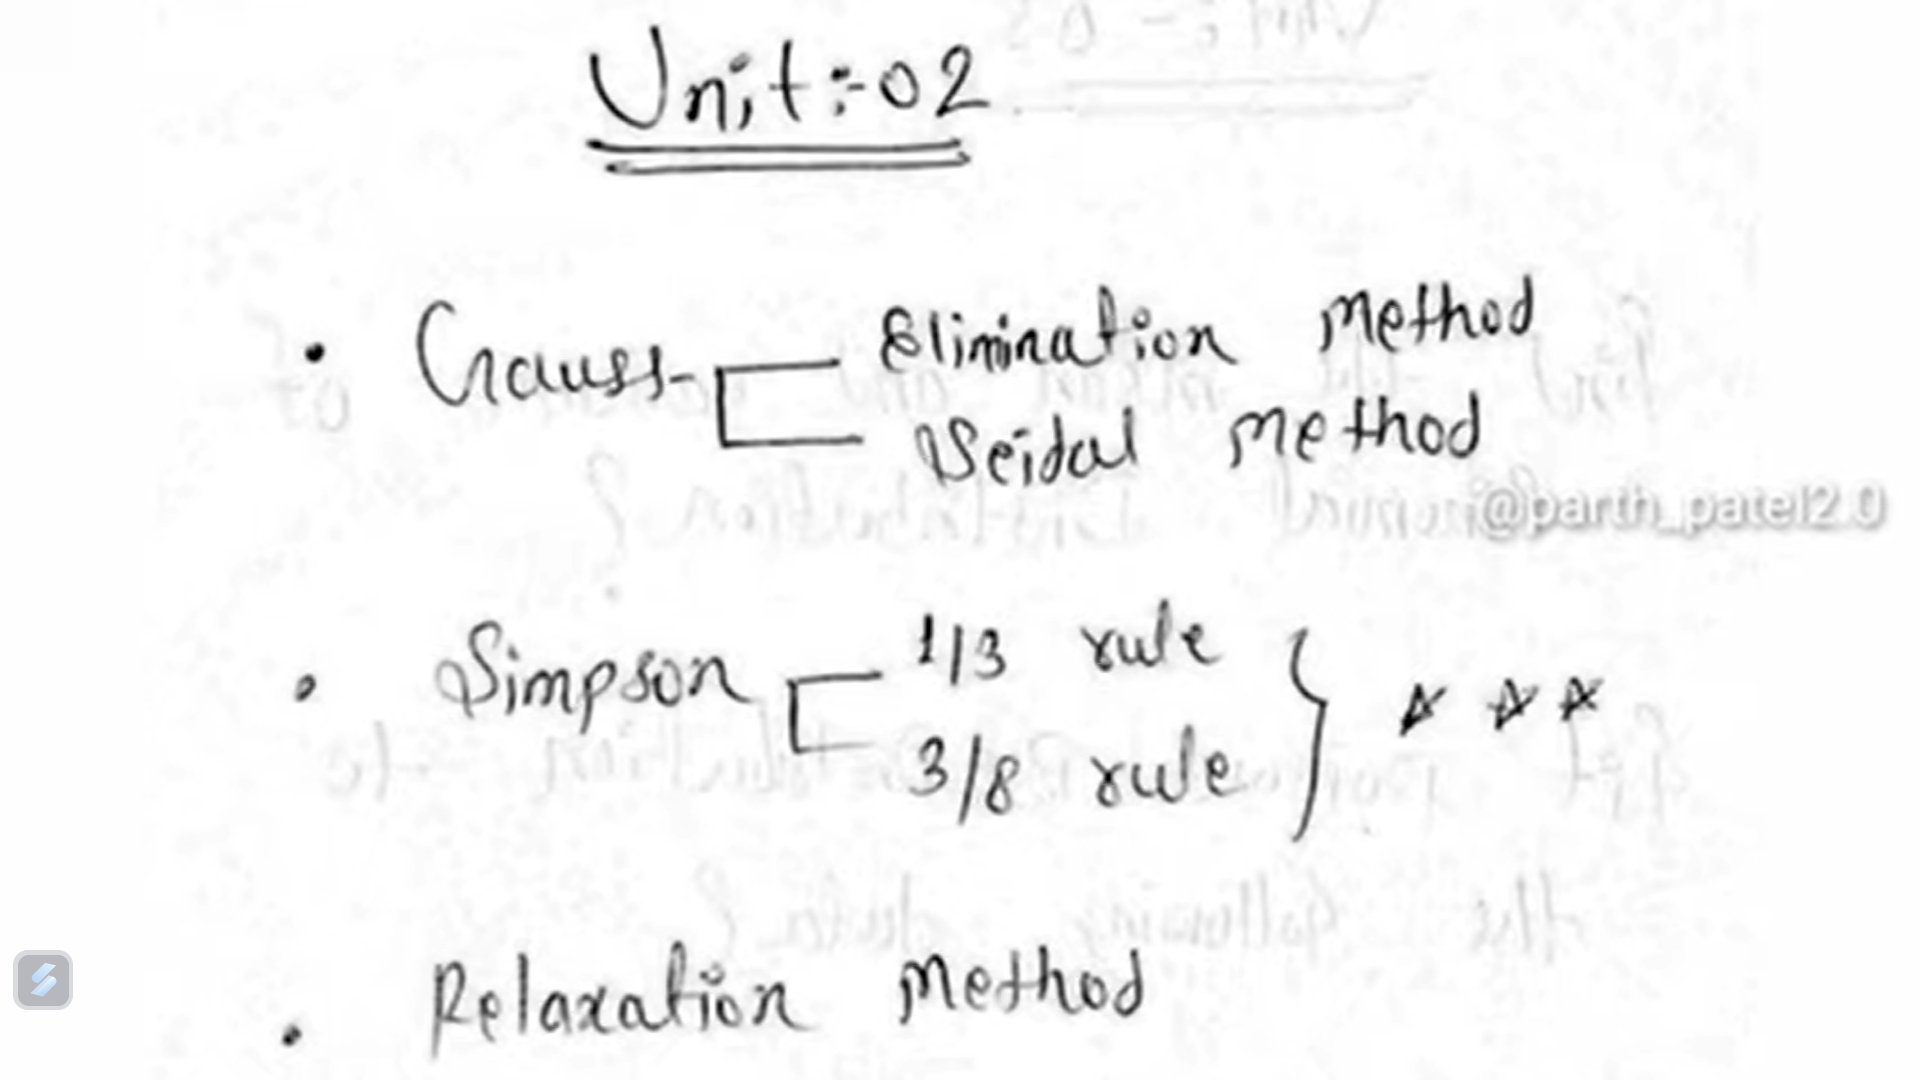 Unit:-02
• Gauss- Elimination Method
Seidal Method
@parth_patel2.0
• Simpson 1/3 rule
3/8 rule } ☆ ☆ ☆
• Relaxation Method